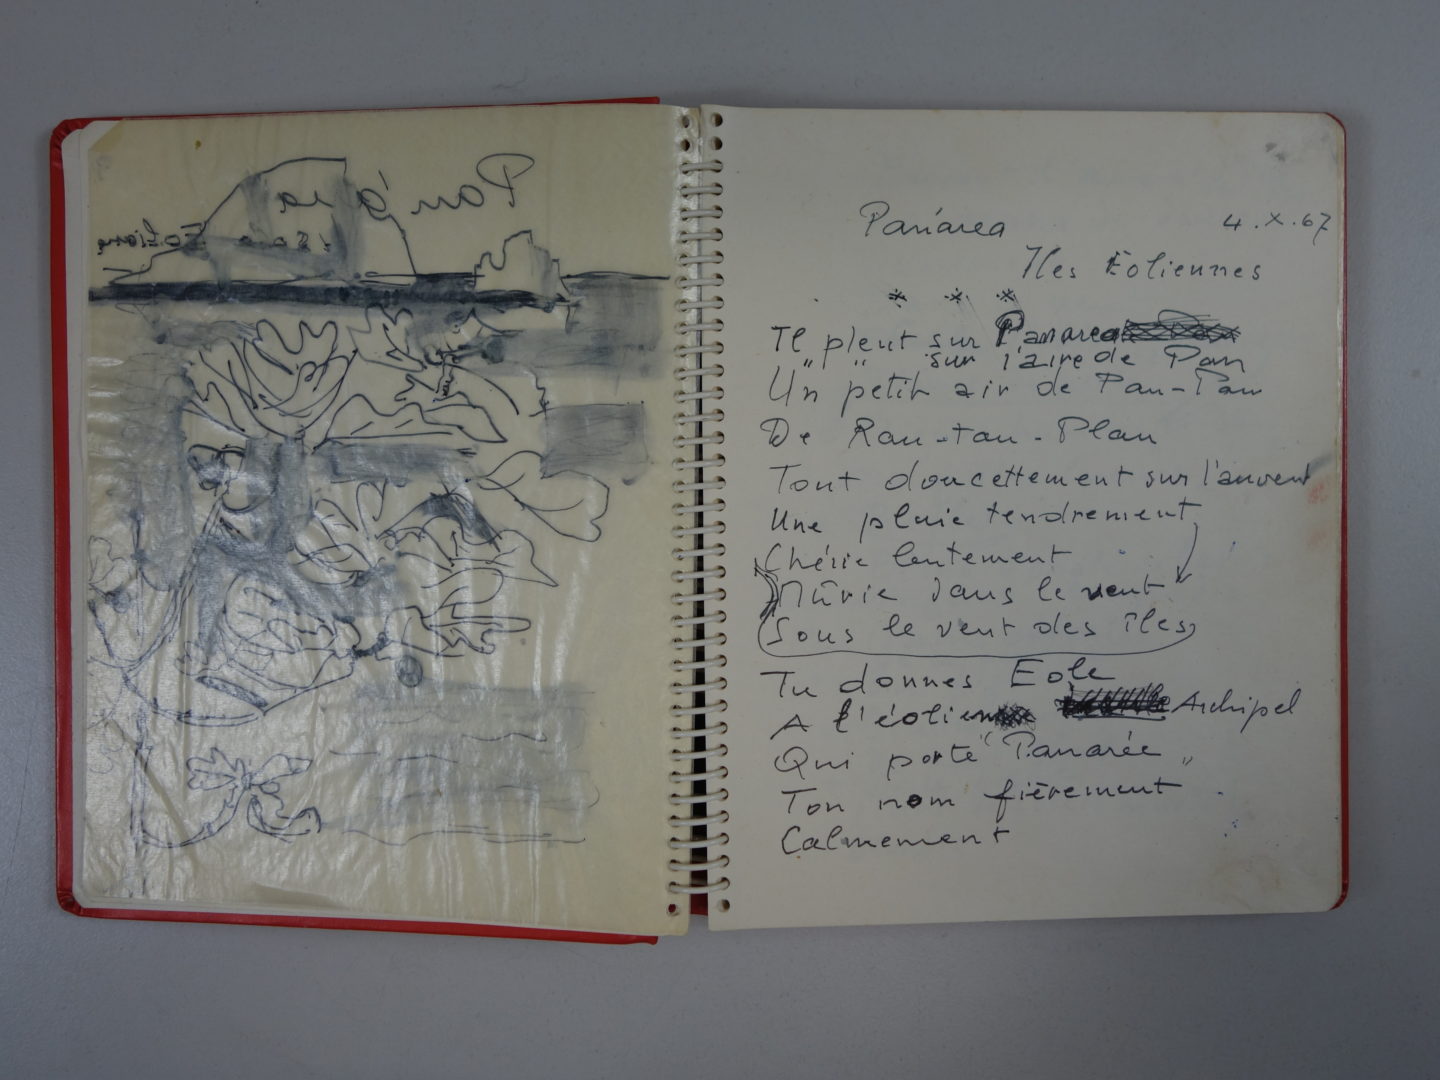 Panárea
Isole Eoliane
Panárea 4.X.67
Iles Eoliennes
* * *
Il pleut sur Panarea
" " sur l'aire de Pan
Un petit air de Pan-Pan
De Ran-tan-Plan
Tout doucettement sur l'auvent
Une pluie tendrement
Chérie lentement
Mûrie dans le vent
Sous le vent des îles
Tu donnes Eole
A l'éolien Archipel
Qui porte "Panarée"
Ton nom fièrement
Calmement